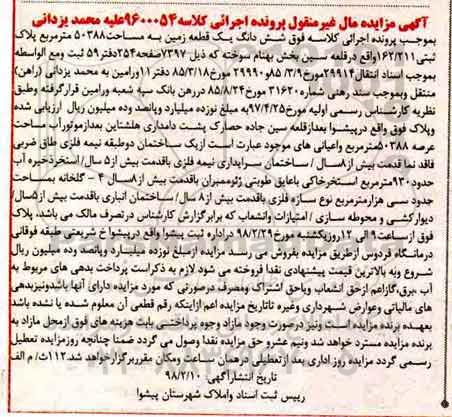 آگهی مزایده مال غیرمنقول پرونده اجرائی کلاسه ۹۶۰۰۰۵۴ علیه محمد یزدانی
بموجب پرونده اجرائی کلاسه فوق شش دانگ یک قطعه زمین به مساحت ۵۰۳۸۸ مترمربع پلاک
ثبتی ۱۶۲/۲۱۱ واقع درقلعه سین بخش بهنام سوخته که ذیل ۷۳۹۷ صفحه ۲۵۴ دفتر ۵۹ ثبت ومع الواسطه
بموجب اسناد انتقال ۲۹۹۱۴ مورخ ۸۵/۳/۹ و ۲۹۹۹۰ مورخ ۸۵/۳/۱۸ دفتر ۱۱ ورامین به محمد یزدانی (راهن)
منتقل وبموجب سند رهنی شماره ۳۱۶۲۰ مورخ ۸۵/۸/۲۴ دررهن بانک سپه شعبه ورامین قرارگرفته وطبق
نظریه کارشناس رسمی اولیه مورخ ۹۷/۴/۲۵ به مبلغ نوزده میلیارد وپانصد وده میلیون ریال ارزیابی شده
وپلاک فوق واقع درپیشوا بعدازقلعه سین جاده حصارک پشت دامداری هلشتاین بعدازموتورآب مساحت
عرصه ۵۰۳۸۸ مترمربع واعیانی های موجود عبارت است ازیک ساختمان دوطبقه نیمه فلزی طاق ضربی
فاقد نما قدمت بیش از ۸ سال / ساختمان سرایداری نیمه فلزی باقدمت بیش از ۵ سال / استخرذخیره آب
حدود ۹۳۰ مترمربع استخرخاکی باعایق طوبتی ژئوممبران باقدمت بیش از ۸ سال ۴ - گلخانه بمساحت
حدود سی هزارمترمربع نوع سازه فلزی باقدمت بیش از ۸ سال / ساختمان انباری باقدمت بیش از ۵ سال/
دیوارکشی و محوطه سازی / امتیازات وانشعاب که برابرگزارش کارشناس درتصرف مالک می باشد، پلاک
فوق ازساعت ۹ الی ۱۲ روزیکشنبه مورخ ۹۸/۲/۲۹ دراداره ثبت پیشوا واقع درپیشوا خ شریعتی طبقه فوقانی
درمانگاه فردوس ازطریق مزایده بفروش می رسد مزایده ازمبلغ نوزده میلیارد وپانصد وده میلیون ریال
شروع وبه بالاترین قیمت پیشنهادی نقدا فروخته می شود لازم به ذکراست پرداخت بدهی های مربوط به
آب ،برق،گازاعم ازحق انشعاب ویاحق اشتراک ومصرف درصورتی که مورد مزایده دارای آنها باشدونیزبدهی
های مالیاتی وعوارض شهرداری وغیره تاتاریخ مزایده اعم ازاینکه رقم قطعی آن معلوم شده یا نشده باشد
بعهده برنده مزایده است ونیز درصورت وجود مازاد وجوه پرداختی بابت هزینه های فوق ازمحل مازاد به
برنده مزایده مسترد خواهد شد ونیم عشرو حق مزایده نقدا وصول می گردد ضمنا چنانچه روزمزایده تعطیل
رسمی گردد مزایده روز اداری بعد ازتعطیلی درهمان ساعت ومکان مقرربرگزارخواهد شد ۱۱۲ ث/ م الف
تاریخ انتشارآگهی: ۹۸/۲/۱۰
رییس ثبت اسناد واملاک شهرستان پیشوا